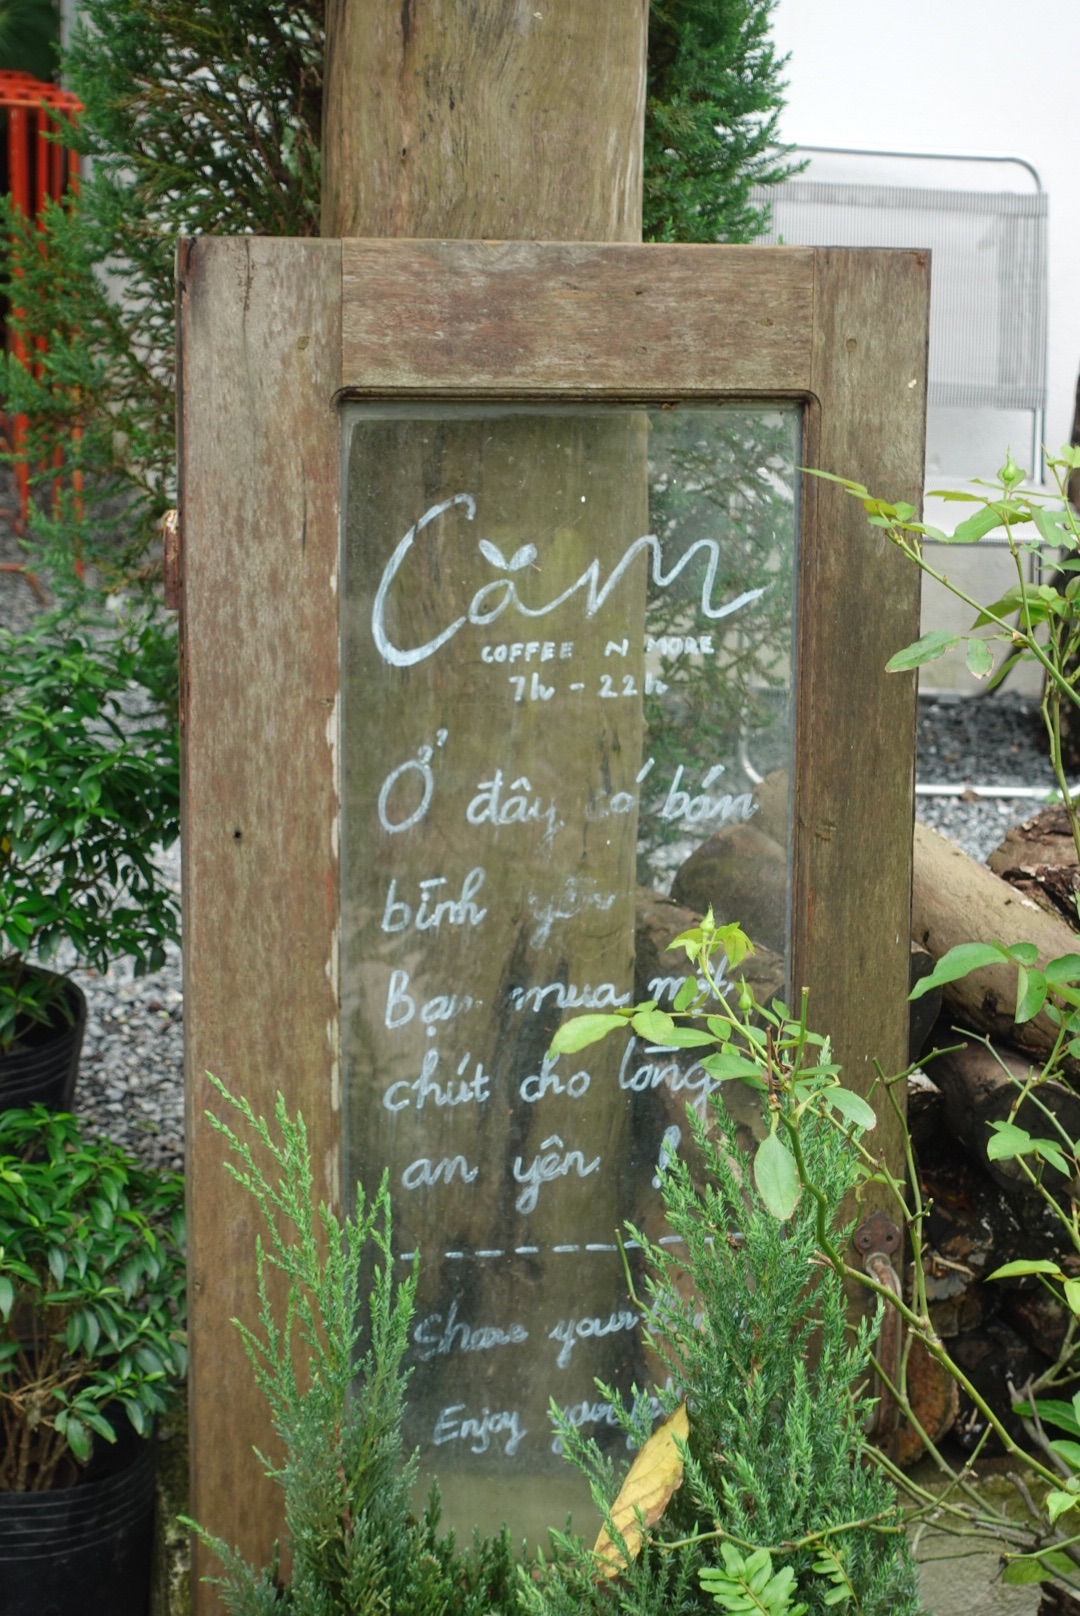 Căm
COFFEE N MORE
7h - 22h
Ở đây có bán
bình yên
Bạn mua một
chút cho lòng
an yên !
Share your
Enjoy your